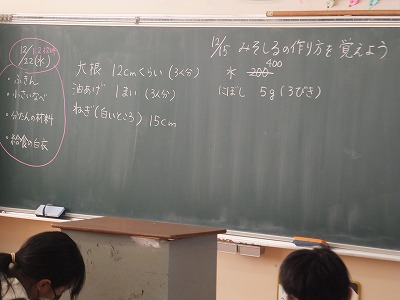 12/
22(水)
・ふきん
・小さいなべ
・分たんの材料
・給食の白衣
大根 12cmくらい (3人分)
油あげ 1まい (3人分)
ねぎ(白いところ) 15cm
12/15 みそしるの作り方を覚えよう
水 200 400
にぼし 5g (3びき)